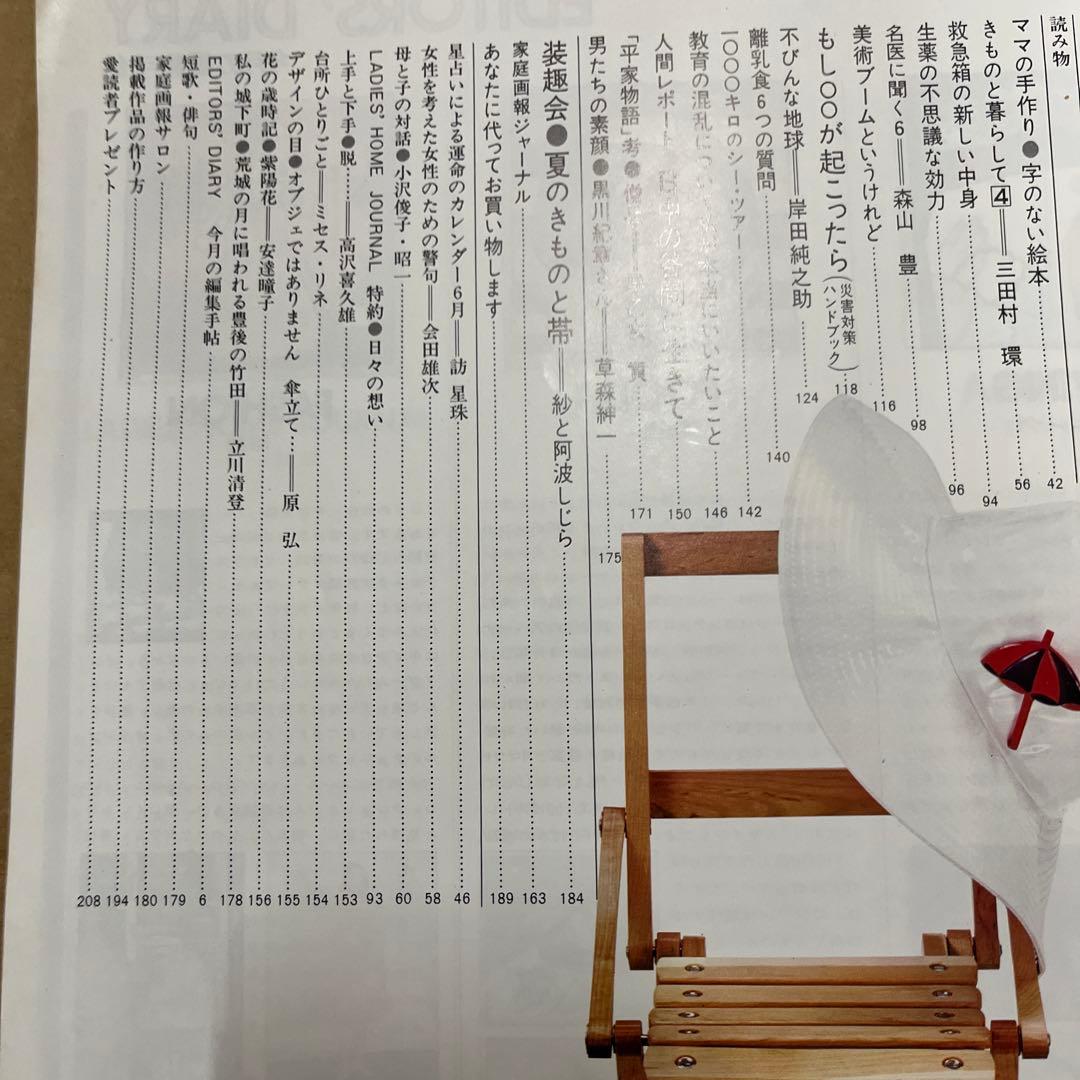 読み物
ママの手作り●字のない絵本 56 42
きものと暮らして4＝三田村 環 94
救急箱の新しい中身 96
生薬の不思議な効力 98
名医に聞く6＝森山 豊 116
美術ブームというけれど 118
もし○○が起こったら(災害対策ハンドブック)
不びんな地球＝岸田純之助 124
離乳食6つの質問 140
一〇〇〇キロのシー・ツァー 142
教育の混乱につい 本当にいいたいこと 146
人間レポート 生きて 150
「平家物語」考● 171
男たちの素顔●黒川紀章さん＝草森紳一 175
装趣会●夏のきものと帯＝紗と阿波しじら 184
家庭画報ジャーナル 163
あなたに代ってお買い物します 189
星占いによる運命のカレンダー6月＝訪 星珠 46
女性を考えた女性のための警句＝会田雄次 58
母と子の対話●小沢俊子・昭一 60
LADIES' HOME JOURNAL 特約●日々の想い 93
上手と下手●脱……＝高沢喜久雄 153
台所ひとりごと＝ミセス・リネ 154
デザインの目●オブジェではありません 傘立て…＝原 弘 155
花の歳時記●紫陽花＝安達瞳子 156
私の城下町●荒城の月に唱われる豊後の竹田＝立川清登 178
EDITORS' DIARY 今月の編集手帖 6
短歌・俳句 179
家庭画報サロン 180
掲載作品の作り方 194
愛読者プレゼント 208